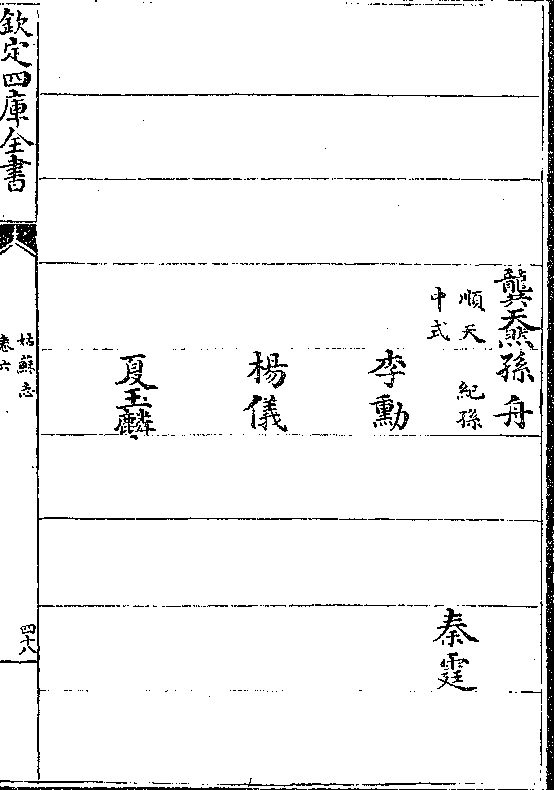 龔天然
孫舟
順天
中式
紀孫
李勳
秦霆
楊儀
夏玉麟
欽定四庫全書
姑蘇志
卷六
四十八